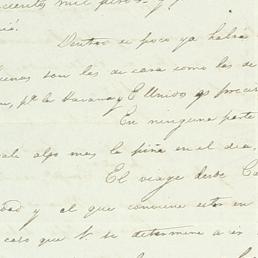 cientos mil pesos y
Dentro de poco ya habrá
son las de casa como las de
pr. la Havana y E Unidos
En ninguna parte
algo mas la piña en el dia
El viage desde Ca
dad y el que conviene estar en
caso que V. se determine a ir